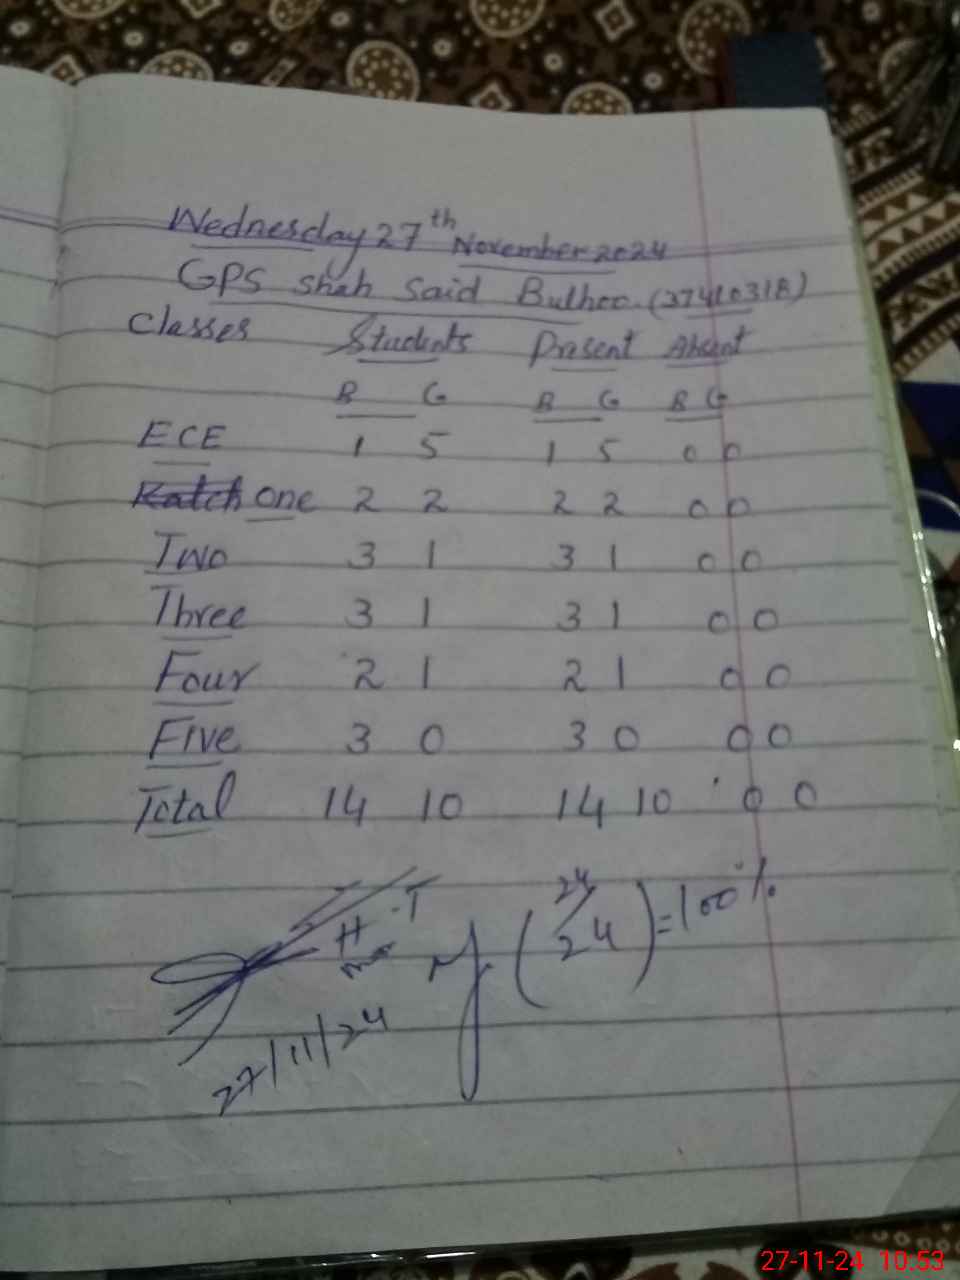 Wednesday 27th November 2024
GPS shah Said Bulhoo. (27410318)
Classes Students Present Absent
B G B G B G
ECE 1 5 1 5 0 0
Katch One 2 2 2 2 0 0
Two 3 1 3 1 0 0
Three 3 1 3 1 0 0
Four 2 1 2 1 0 0
Five 3 0 3 0 0 0
Total 14 10 14 10 0 0
H.T (24/24) = 100%
27/11/24
27-11-24 10:53